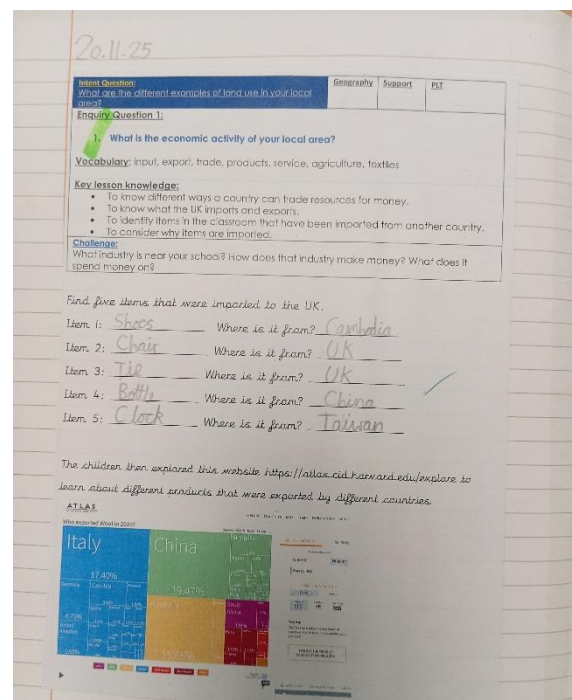 20.11.25
Intent Question: Geography Support PLT
What are the different examples of land use in your local
area?
Enquiry Question 1:
1. What is the economic activity of your local area?
Vocabulary: input, export, trade, products, service, agriculture, textiles
Key lesson knowledge:
• To know different ways a country can trade resources for money.
• To know what the UK imports and exports.
• To identify items in the classroom that have been imported from another country.
• To consider why items are imported.
Challenge:
What industry is near your school? How does that industry make money? What does it
spend money on?
Find five items that were imported to the UK.
Item 1: Shoes Where is it from? Cambodia
Item 2: Chair Where is it from? UK
Item 3: Tie Where is it from? UK
Item 4: Bottle Where is it from? China
Item 5: Clock Where is it from? Taiwan
The children then explored this website https://atlas.cid.harvard.edu/explore to
learn about different products that were exported by different countries.
ATLAS
Italy China
37.40% 19.47%